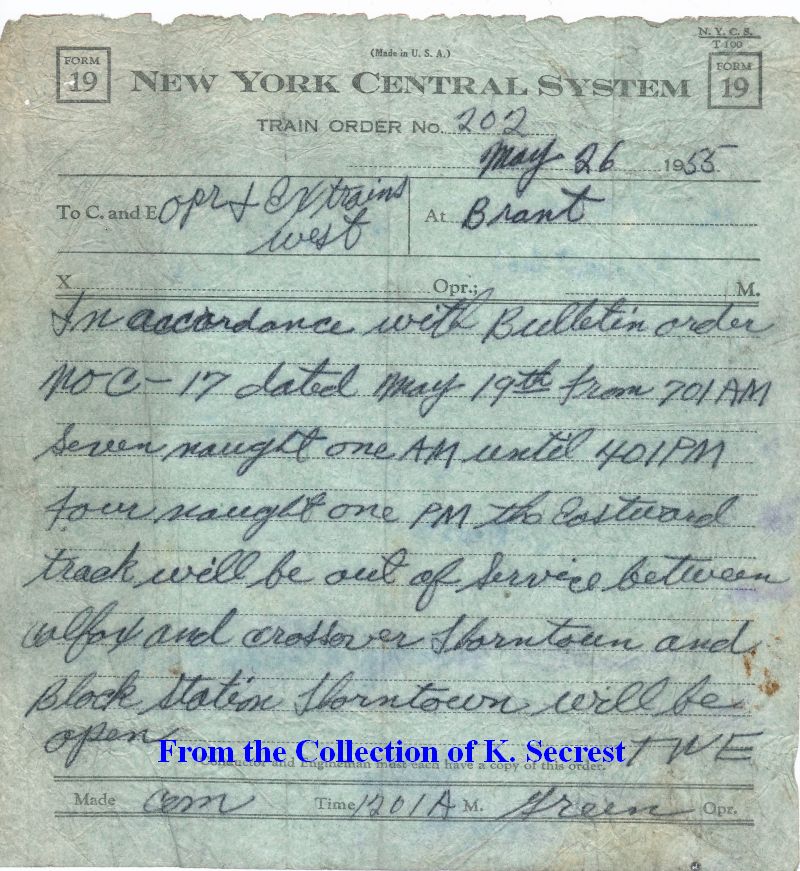 N. Y. C. S.
T-100
(Made in U. S. A.)
FORM 19
NEW YORK CENTRAL SYSTEM
FORM 19
TRAIN ORDER No. 202
May 26 1955
To C. and E opr & Ex trains west
At Brant
X Opr.; M.
In accordance with Bulletin order
No C-17 dated May 19th from 701 AM
Seven naught one AM until 401 PM
four naught one PM the Eastward
track will be out of service between
Colfax and crossover Thorntown and
Block Station Thorntown will be
open TWE
From the Collection of K. Secrest
Conductor and Engineman must each have a copy of this order.
Made com Time 1201A M. Green Opr.